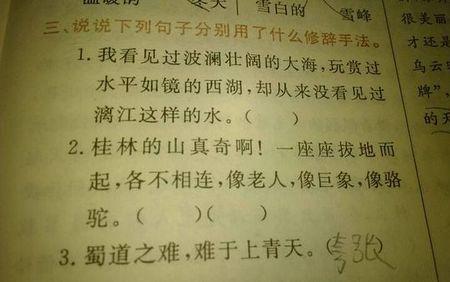 冬天 雪白的 雪峰
三、说说下列句子分别用了什么修辞手法。
1.我看见过波澜壮阔的大海,玩赏过
水平如镜的西湖,却从来没看见过
漓江这样的水。( )
2.桂林的山真奇啊!一座座拔地而
起,各不相连,像老人,像巨象,像骆
驼。( )( )
3.蜀道之难,难于上青天。(夸张)
很美丽
才还是
乌云
牌”,
的天